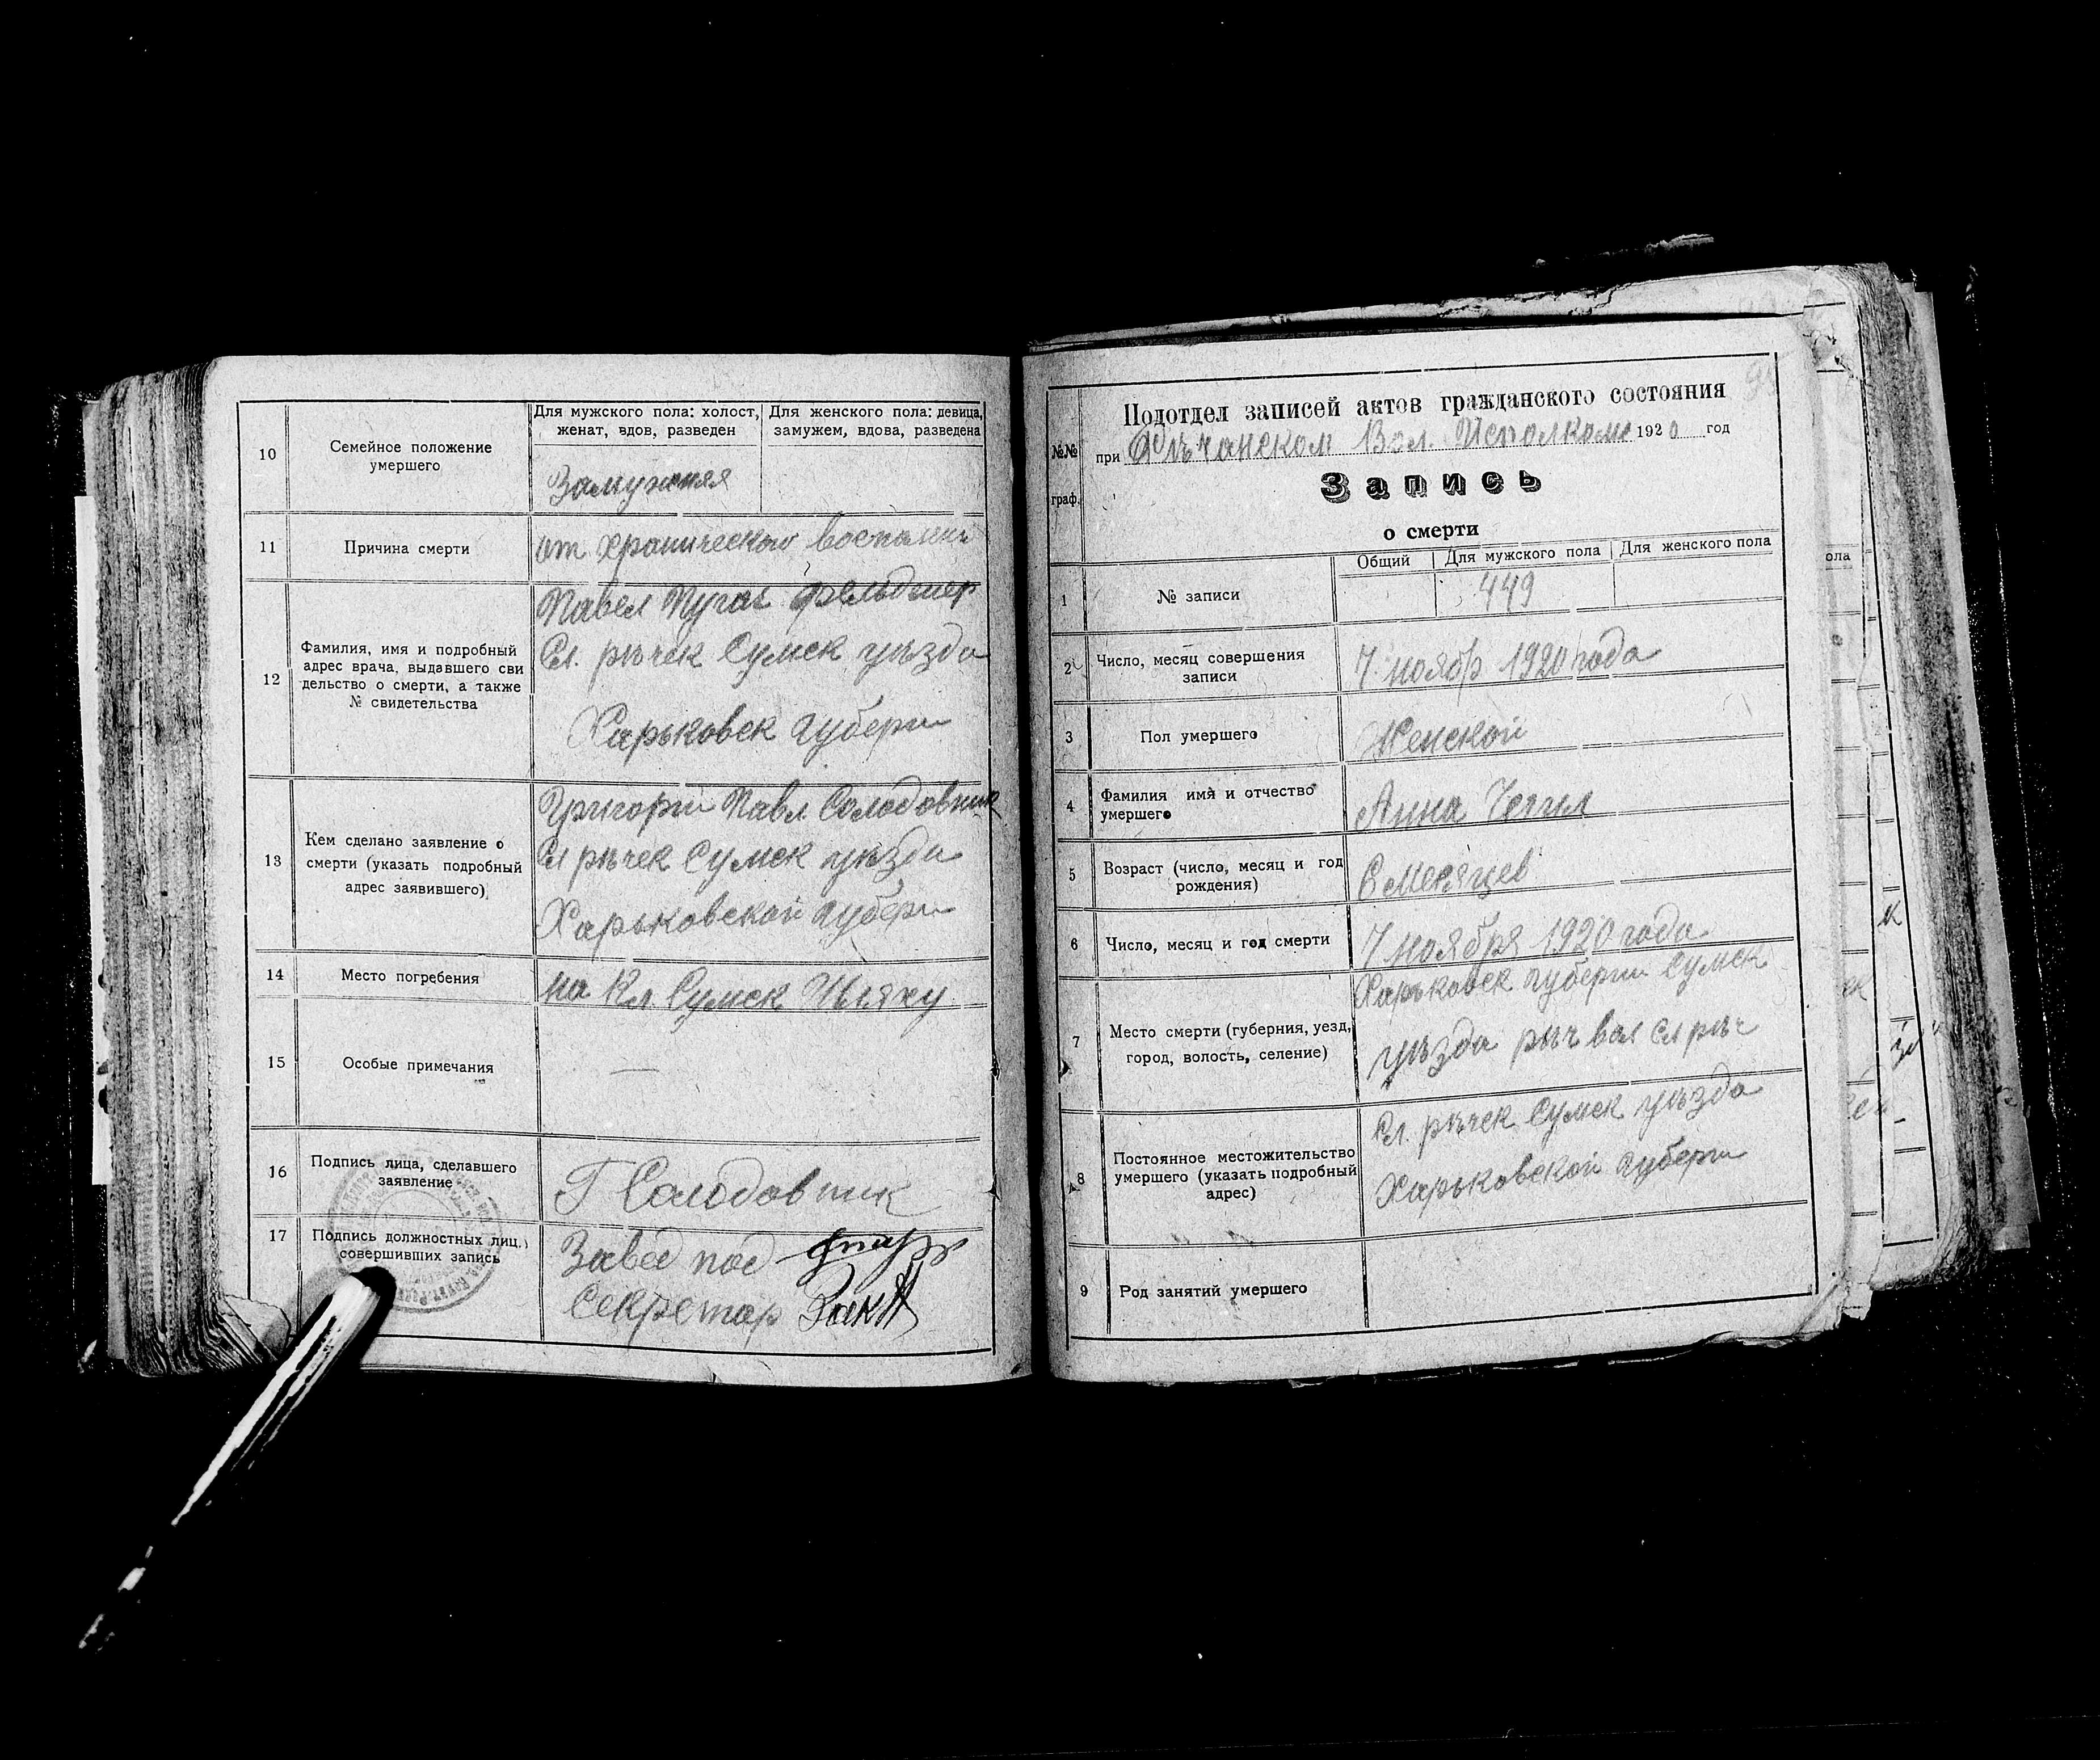 10
Семейное положение
умершего
Для мужского пола: холост,
женат, вдов, разведен
Для женского пола: девица,
замужем, вдова, разведена
Замужняя
11
Причина смерти
от хронического воспален
12
Фамилия, имя и подробный
адрес врача, выдавшего сви
дельство о смерти, а также
№ свидетельства
Павел Пугач фельдшер
Сл. рѣчек Сумск уѣзда
Харьковск губерни
13
Кем сделано заявление о
смерти (указать подробный
адрес заявившего)
Григори Павл Солодовник
Сл рѣчек Сумск уѣзда
Харьковской губерн
14
Место погребения
на Кл Сумск Шляху
15
Особые примечания
—
16
Подпись лица, сделавшего
заявление
Г Солодовник
17
Подпись должностных лиц,
совершивших запись
Завед под
Секретар
№№
граф.
Подотдел записей актов гражданского состояния
при Рѣчанском Вол. Исполкоме 1920 год
Запись
о смерти
1
№ записи
Общий
Для мужского пола
Для женского пола
449
2
Число, месяц совершения
записи
7 нояб/р 1920 года
3
Пол умершего
Женской
4
Фамилия имя и отчество
умершего
Анна
5
Возраст (число, месяц и год
рождения)
месяцев
6
Число, месяц и год смерти
7 ноября 1920 года
7
Место смерти (губерния, уезд,
город, волость, селение)
Харьковск губерни Сумск
уѣзда рѣч вол сл рѣч
8
Постоянное местожительство
умершего (указать подробный
адрес)
Сл. рѣчек Сумск уѣзда
Харьковской губерни
9
Род занятий умершего